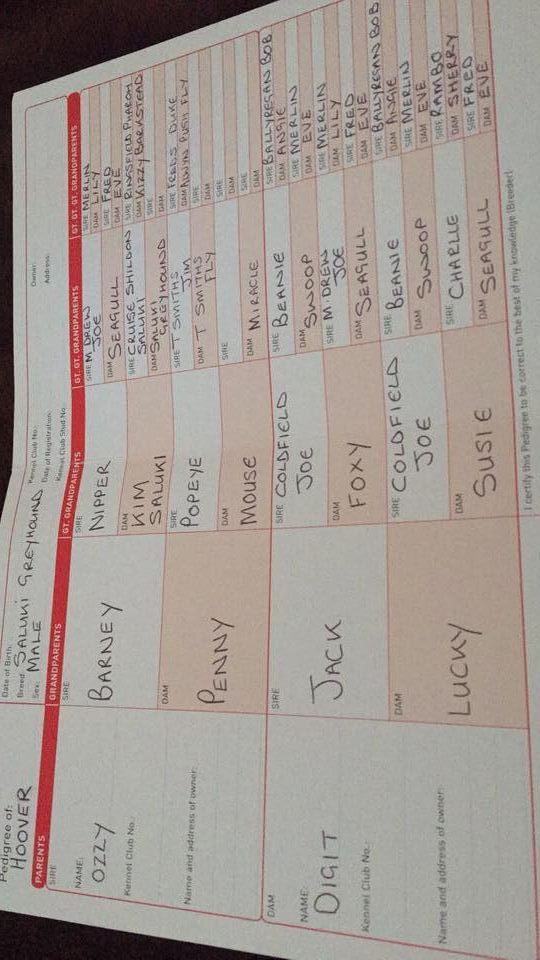 Pedigree of:
HOOVER
Date of Birth:
Breed: SALUKI GREYHOUND
Sex: MALE
Kennel Club No.:
Date of Registration:
Kennel Club Stud No.:
Owner:
Address:
PARENTS
GRANDPARENTS
GT. GRANDPARENTS
GT. GT. GRANDPARENTS
GT. GT. GT. GRANDPARENTS
SIRE
NAME:
OZZY
Kennel Club No.:
Name and address of owner:
DAM
NAME:
DIGIT
Kennel Club No.:
Name and address of owner:
SIRE
BARNEY
DAM
PENNY
SIRE
JACK
DAM
LUCKY
SIRE
NIPPER
DAM
KIM
SALUKI
SIRE
POPEYE
DAM
MOUSE
SIRE COLDFIELD
JOE
DAM
FOXY
SIRE COLDFIELD
JOE
DAM
SUSIE
SIRE M. DREW
JOE
DAM SEAGULL
SIRE CRUISE SHILDON
SALUKI
DAM SALUKI
GREYHOUND
SIRE T SMITHS
JIM
DAM T SMITHS
FLY
SIRE
DAM MIRACLE
SIRE BEANIE
DAM SWOOP
SIRE M. DREW
JOE
DAM SEAGULL
SIRE BEANIE
DAM SWOOP
SIRE CHARLIE
DAM SEAGULL
SIRE MERLIN
DAM LILY
SIRE FRED
DAM EVE
SIRE RINGSFIELD
DAM KIZZY BARKSTEAD
SIRE
DAM
SIRE FREDS DUKE
DAM FLY
SIRE
DAM
SIRE
DAM
SIRE
DAM
SIRE BALLYREGAN BOB
DAM ANGIE
SIRE MERLIN
DAM EVE
SIRE MERLIN
DAM LILY
SIRE FRED
DAM EVE
SIRE BALLYREGAN BOB
DAM ANGIE
SIRE MERLIN
DAM EVE
SIRE RAMBO
DAM SHERRY
SIRE FRED
DAM EVE
I certify this Pedigree to be correct to the best of my knowledge (Breeder)